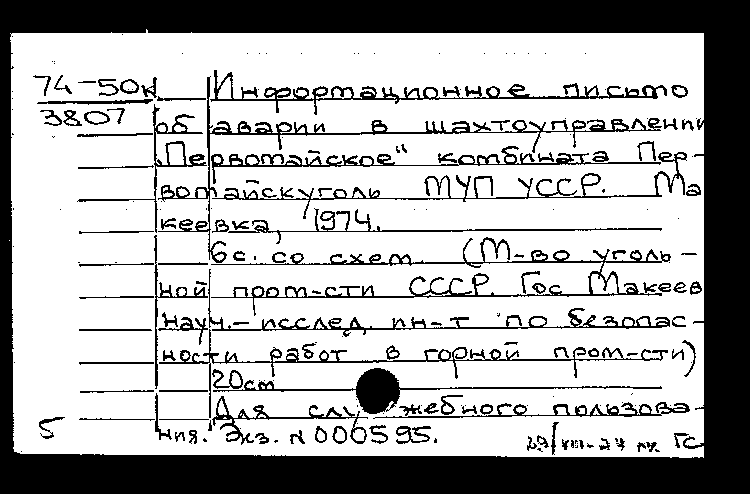 74-50к Информационное письмо
3807 об аварии в шахтоуправлении
"Первомайское" комбината Пер-
вомайскуголь МУП УССР. Ма
кеевка, 1974.
6с. со схем. (М-во уголь-
ной пром-сти СССР. Гос Макеев
науч.-исслед. ин-т по безопас-
ности работ в горной пром-сти)
20см
Для служебного пользова-
5 ния. Экз. N 000595. ГС